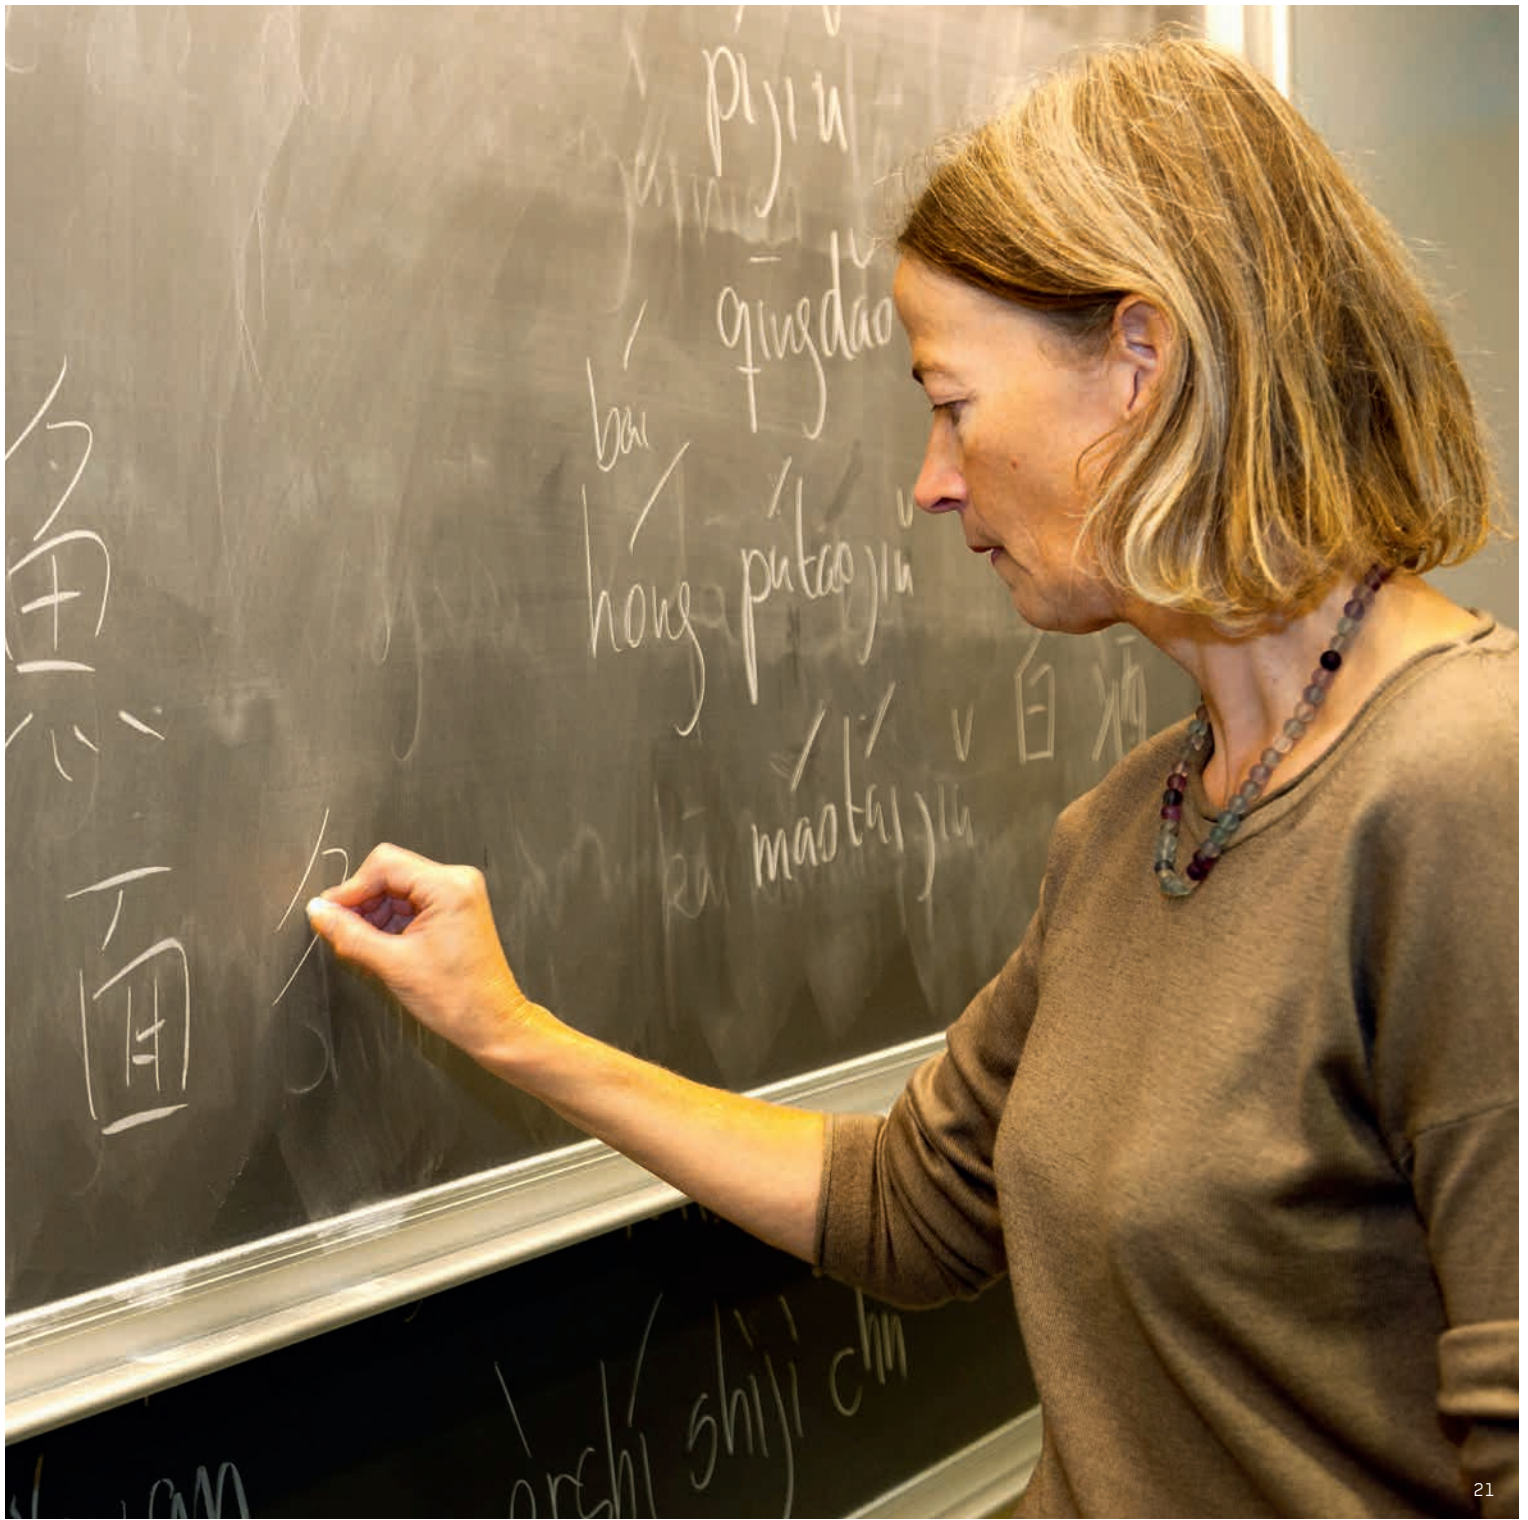 píjiǔ
qīngdǎo
bái
hóng pútáojiǔ
máotáijiǔ 白酒
鱼
面
èrshí shìjì chū
21